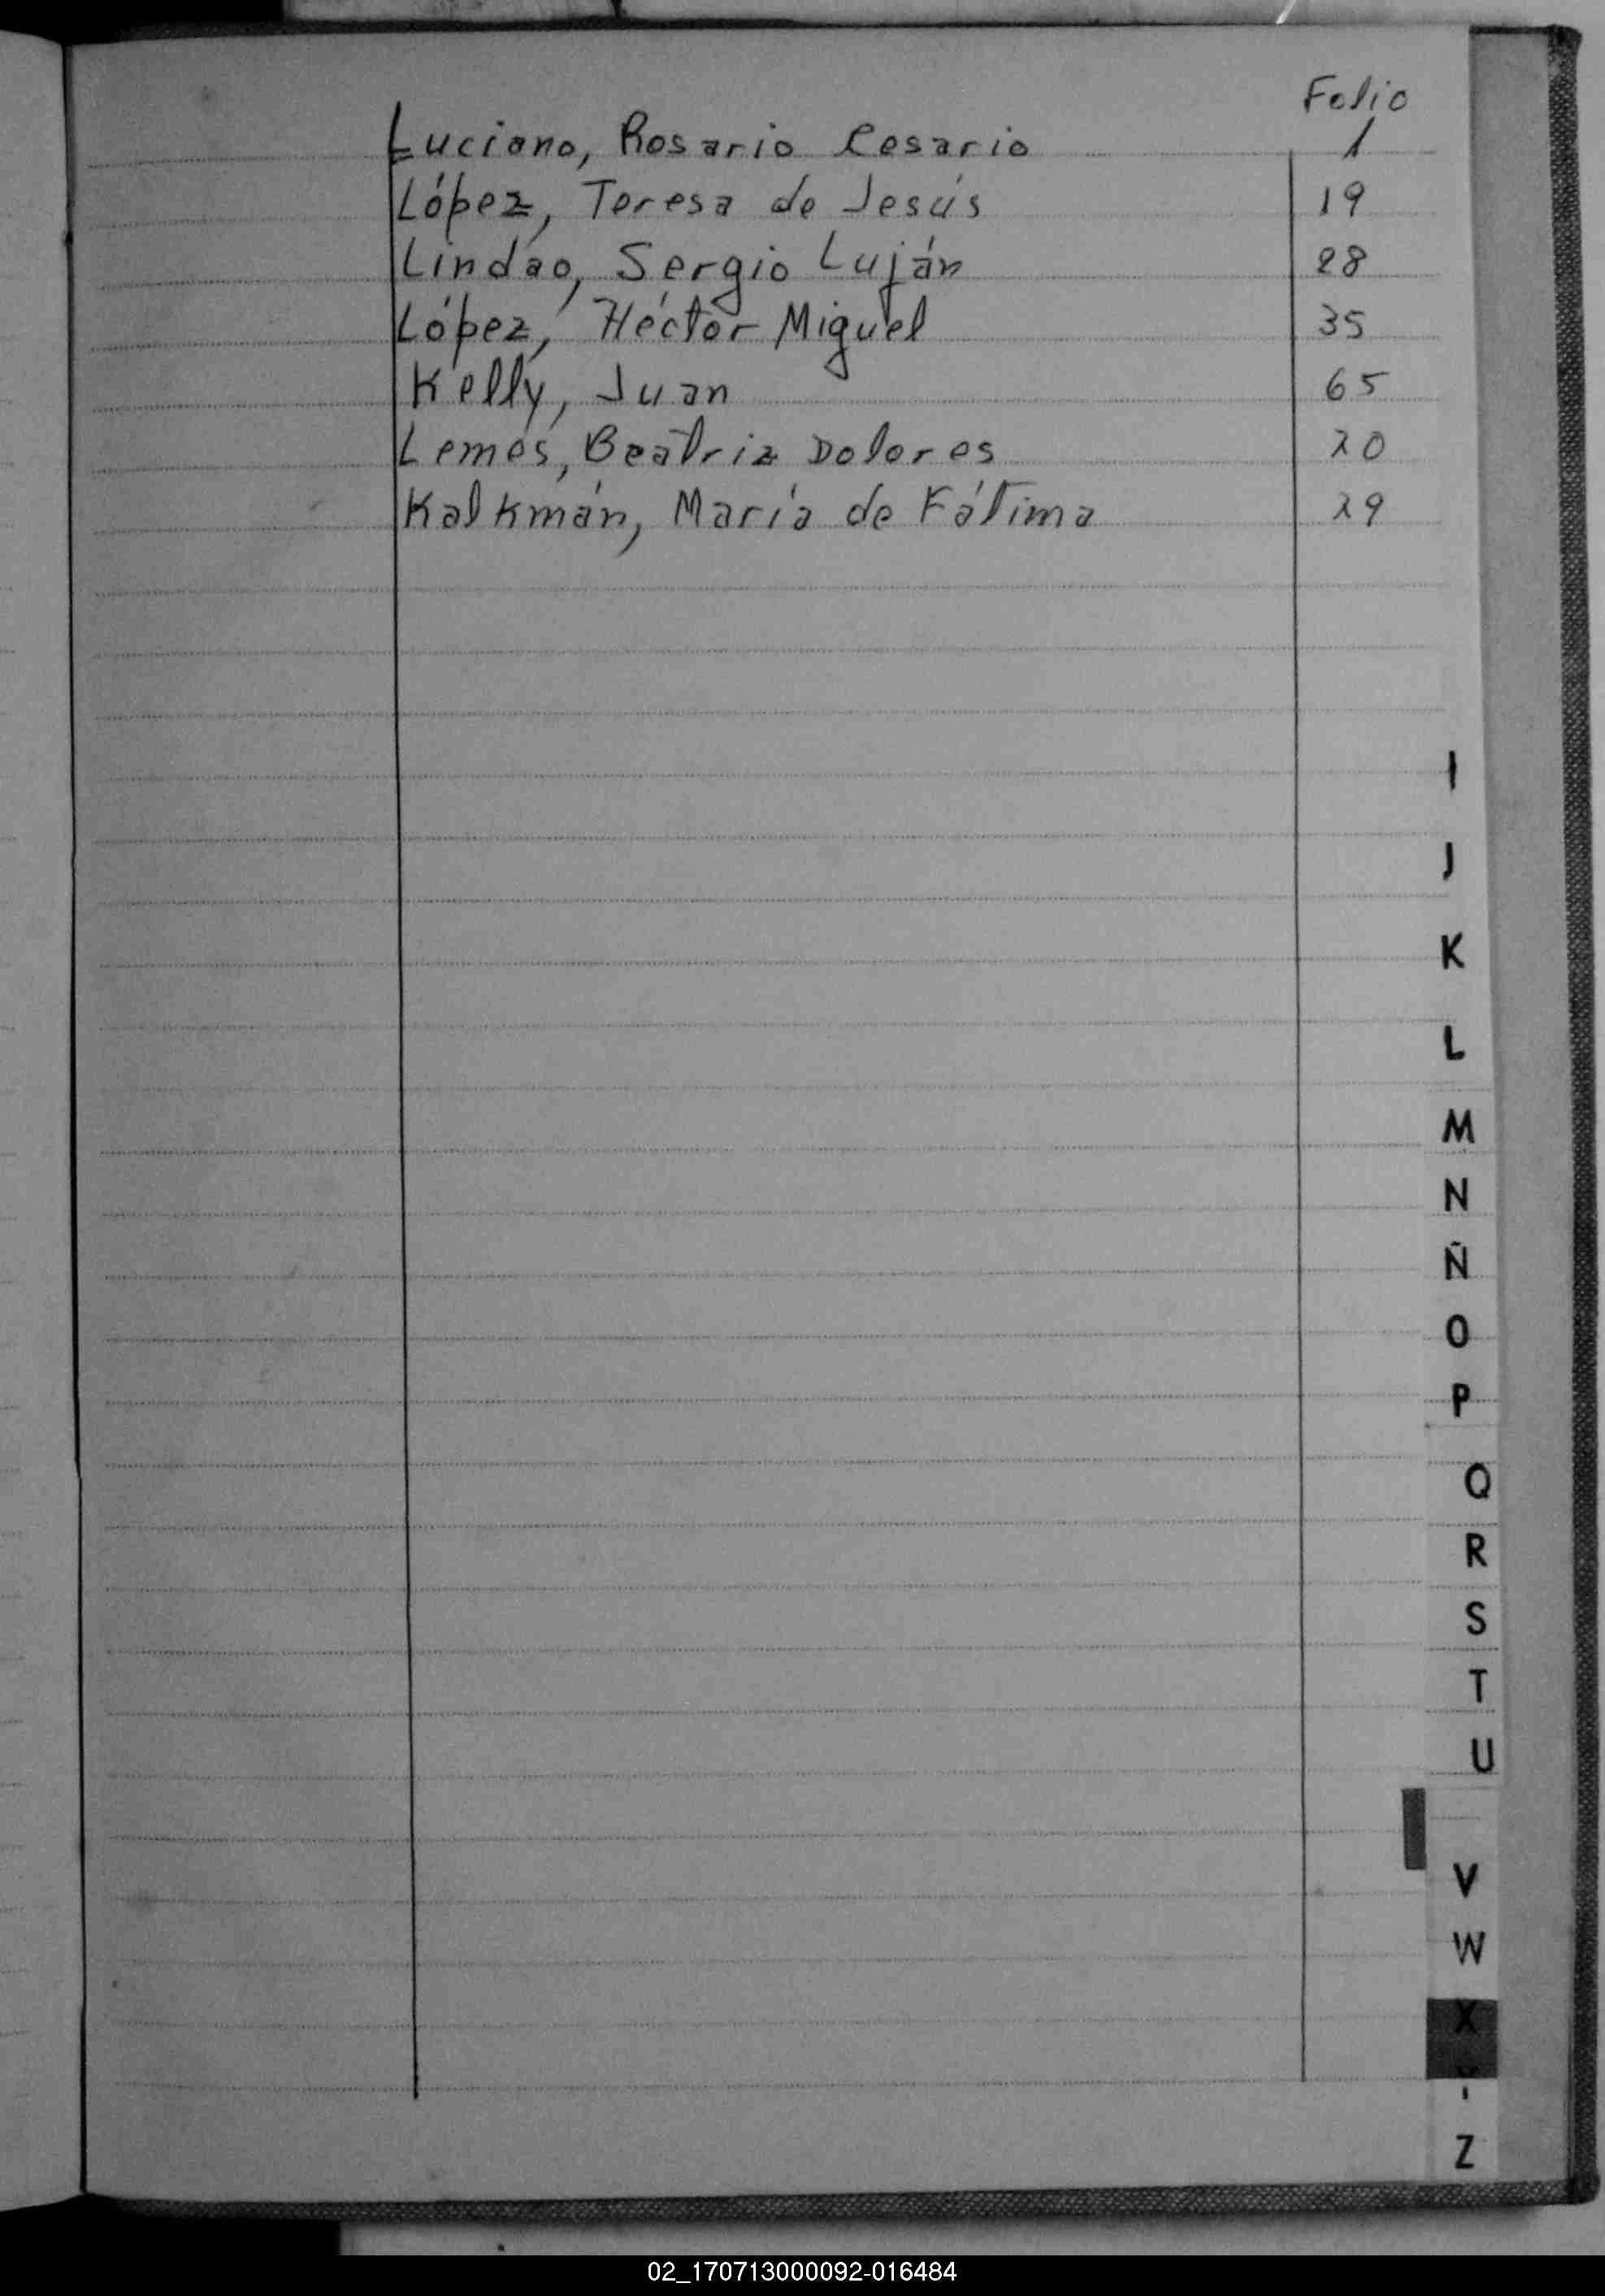 Folio
Luciano, Rosario Cesario 1
López, Teresa de Jesús 19
Lindao, Sergio Luján 28
López, Héctor Miguel 35
Kelly, Juan 65
Lemos, Beatriz Dolores 20
Kalkmán, María de Fátima 29
I
J
K
L
M
N
Ñ
O
P
Q
R
S
T
U
V
W
X
Y
Z
02_170713000092-016484